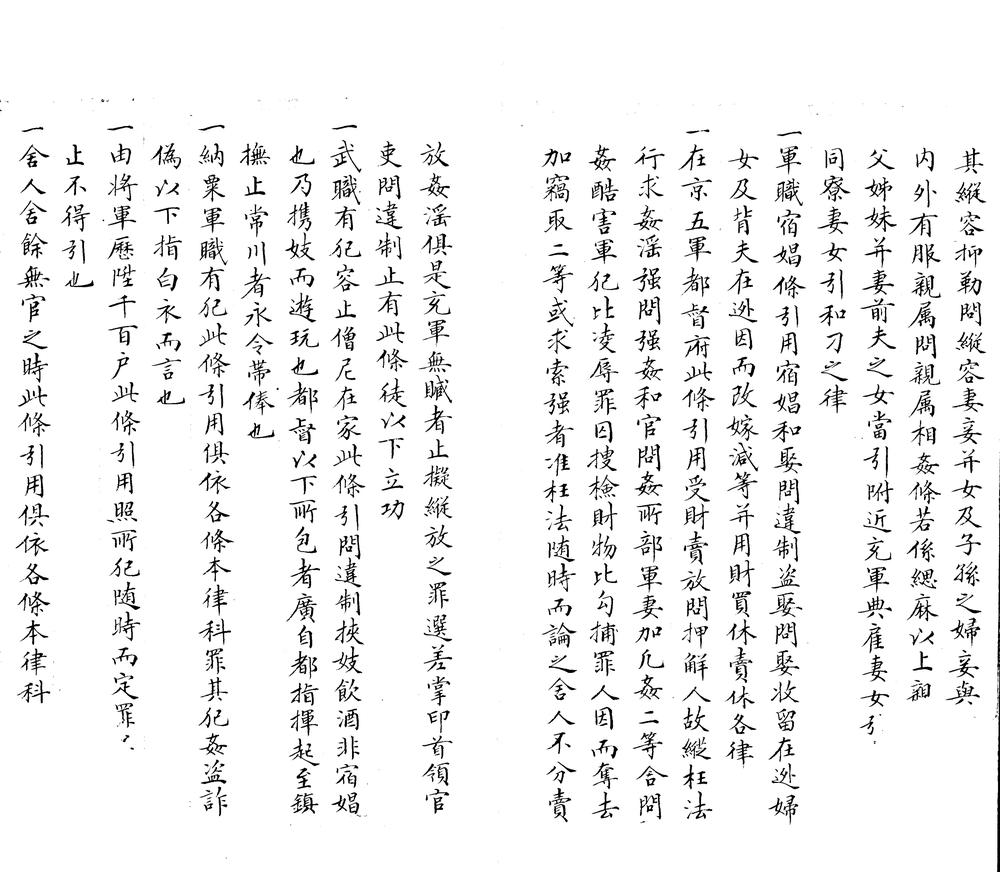 其縱容抑勒問縱容妻妾并女及子孫之婦妾與
内外有服親属問親属相姦條若係緦麻以上親
父姊妹并妻前夫之女當引附近充軍典雇妻女引
同寮妻女引和刁之律
一軍職宿娼條引用宿娼和娶問違制盗娶問娶收留在迯婦
女及背夫在迯因而改嫁減等并用財買休賣休各律
一在京五軍都督府此條引用受財賣放問押解人故縱枉法
行求姦滛强問强姦和官問姦所部軍妻加凢姦二等合問
姦酷害軍犯比凌辱罪囚搜檢財物比勾捕罪人因而奪去
加竊取二等或求索强者准枉法随時而論之舍人不分賣
放姦滛俱是充軍無贓者止擬縱放之罪選差掌印首領官
吏問違制止有此條徒以下立功
一武職有犯容止僧尼在家此條引問違制挾妓飲酒非宿娼
也乃携妓而遊玩也都督以下所包者廣自都指揮起至鎮
撫止常川者永令帶俸也
一納粟軍職有犯此條引用俱依各條本律科罪其犯姦盗詐
偽以下指白衣而言也
一由將軍歷陞千百户此條引用照所犯随時而定罪
止不得引也
一舍人舍餘無官之時此條引用俱依各條本律科